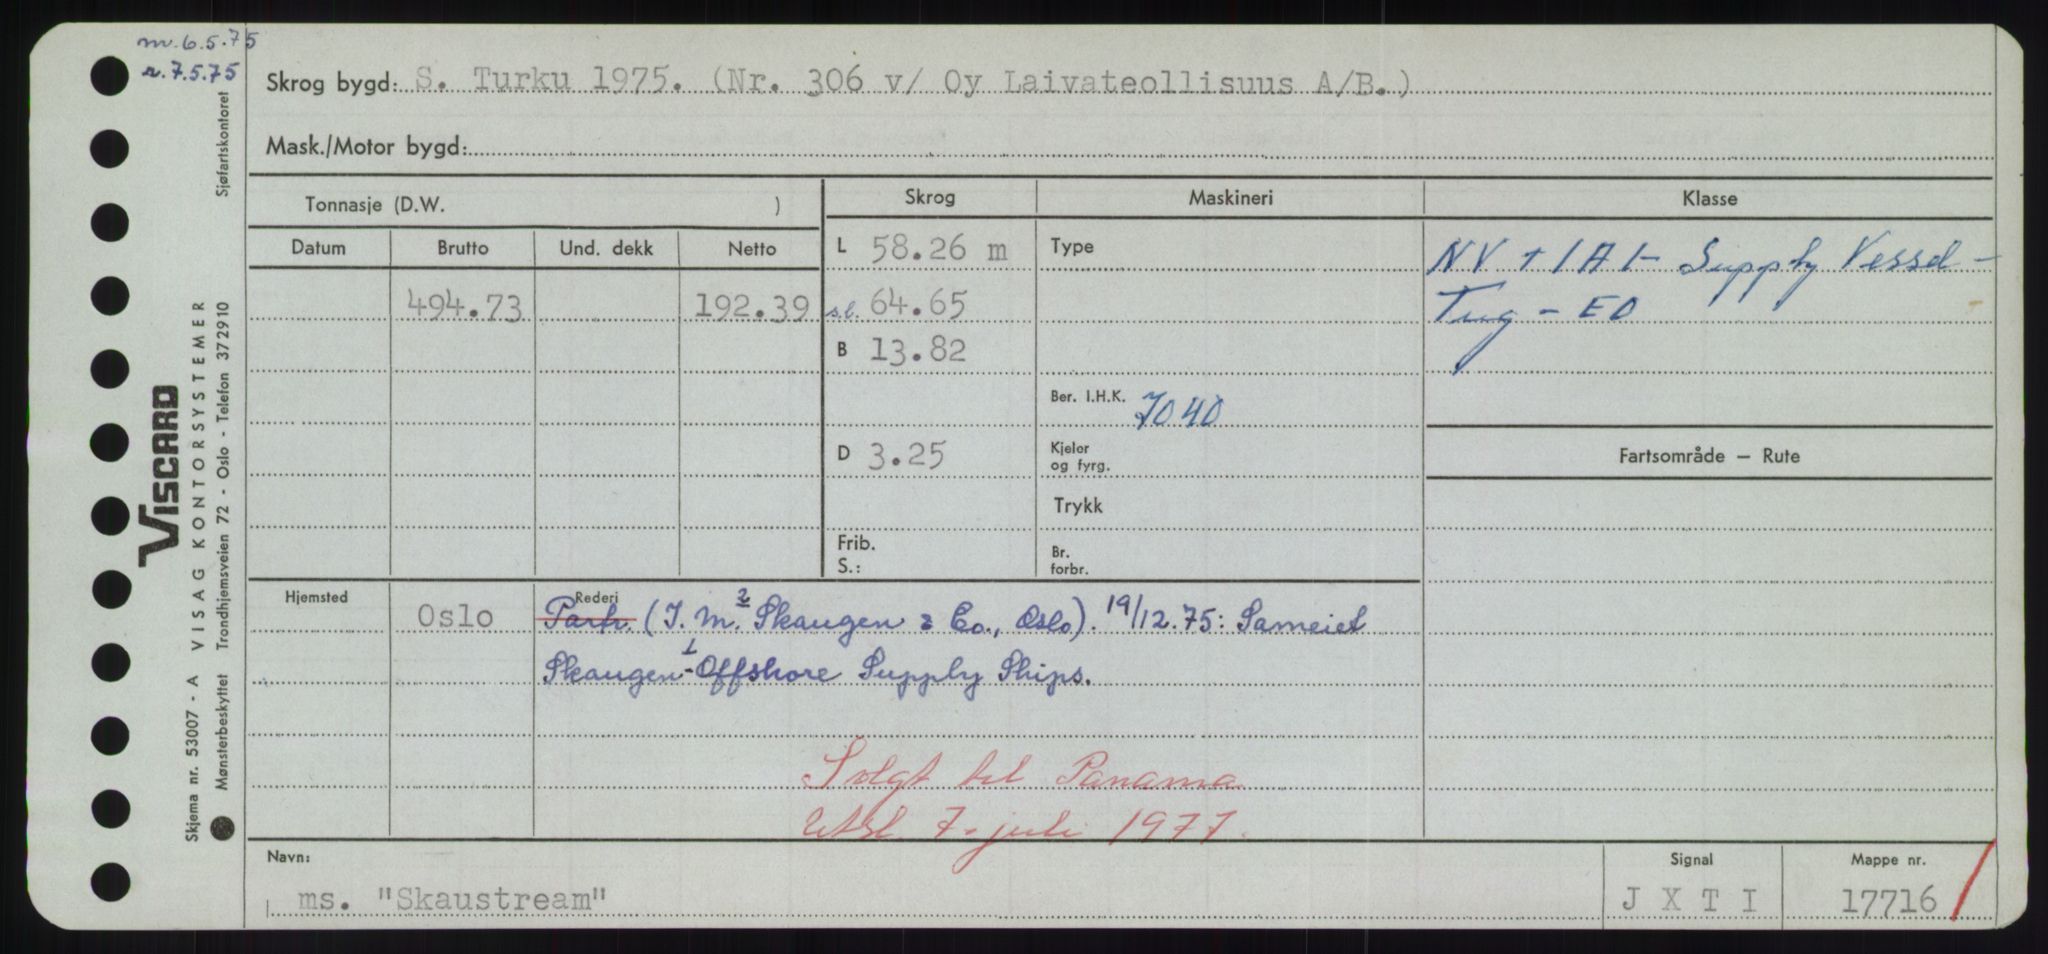 m. 6.5.75
r. 7.5.75
Skrog bygd: S. Turku 1975. (Nr. 306 v/ Oy Laivateollisuus A/B.)
Mask./Motor bygd:
Tonnasje (D.W. )
Skrog Maskineri Klasse
Datum Brutto Und. dekk Netto
L 58.26 m Type NV + 1A1- Supply Vessel -
494.73 192.39 s.l. 64.65 Tug - EO
B 13.82
Ber. I.H.K. 7040
D 3.25 Kjeler og fyrg. Fartsområde — Rute
Trykk
Frib. Br.
S.: forbr.
Hjemsted Rederi
Oslo Partr. (I. M. 2 Skaugen & Co., Oslo). 19/12.75: Sameiet
Skaugen 1 - Offshore Supply Ships.
Solgt til Panama
Utsl. 7. juli 1977.
Navn: Signal Mappe nr.
ms. "Skaustream" J X T I 17716
VISCARD
VISAG KONTORSYSTEMER
Skjema nr. 53007 - A
Mønsterbeskyttet Trondhjemsveien 72 - Oslo - Telefon 372910 Sjøfartskontoret